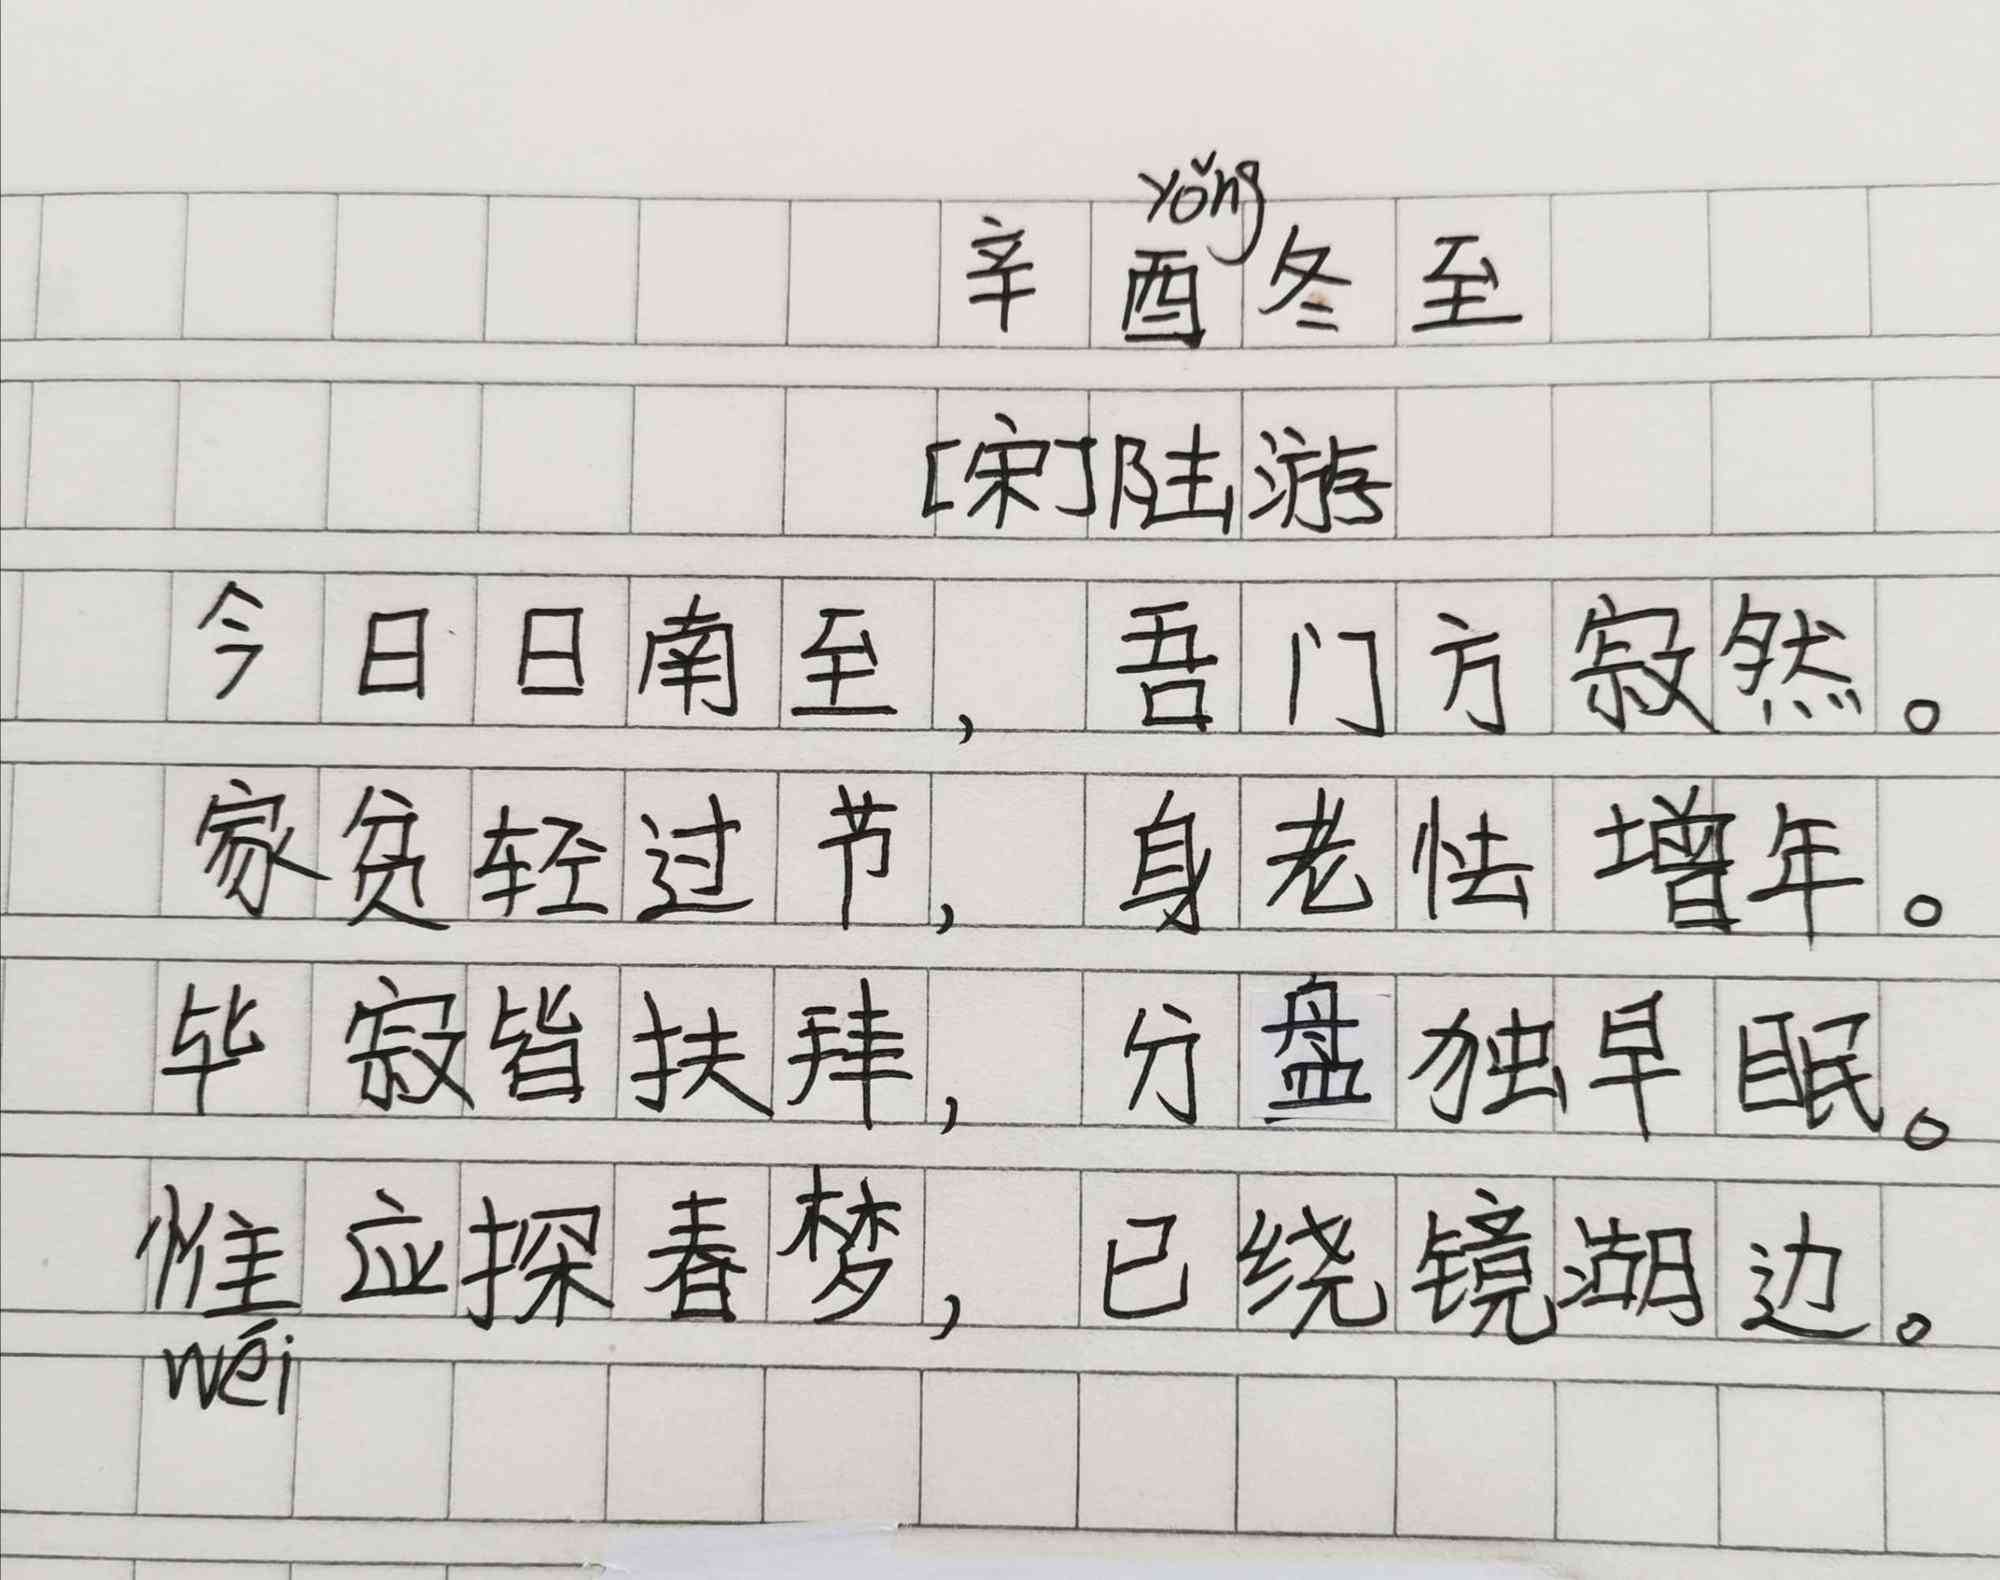 yǒng
辛酉冬至
[宋]陆游
今日日南至，吾门方寂然。
家贫轻过节，身老怯增年。
毕寂皆扶拜，分盘独早眠。
惟应探春梦，已绕镜湖边。
wéi